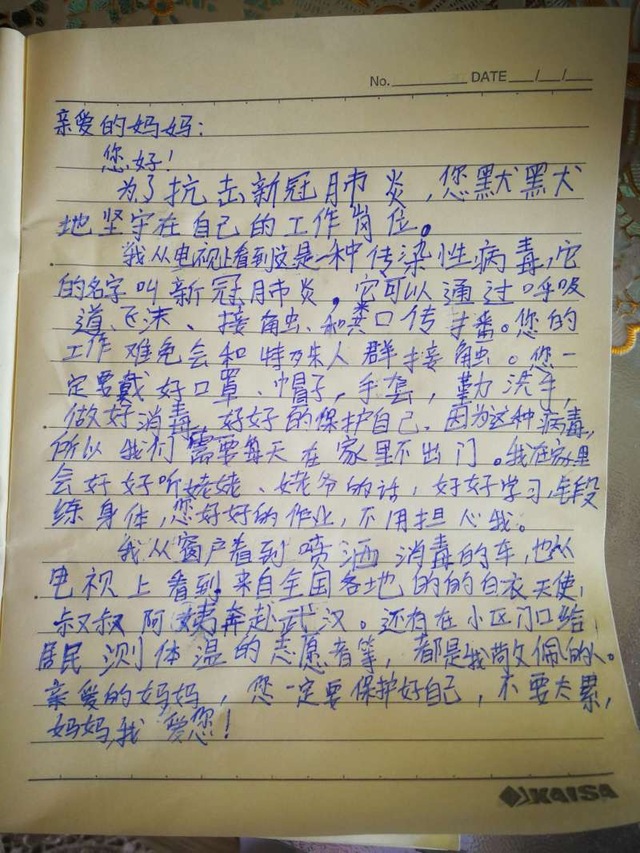 No. DATE / /
亲爱的妈妈：
您好！
为了抗击新冠肺炎，您默默
地坚守在自己的工作岗位。
我从电视上看到这是一种传染性病毒，它
的名字叫新冠肺炎，它可以通过呼吸
道、飞沫、接触、和粪口传播。您的
工作难免会和特殊人群接触。您一
定要戴好口罩、帽子，手套，勤洗手，
做好消毒，好好的保护自己，因为这种病毒，
所以我们需要每天在家里不出门。我在家里
会好好听姥姥、姥爷的话，好好学习，段
练身体，您好好的作业，不用担心我。
我从窗户看到喷洒消毒的车，也从
电视上看到，来自全国各地的的白衣天使，
叔叔阿姨奔赴武汉。还有在小区门口给
居民测体温的志愿者等，都是我敬佩的人。
亲爱的妈妈，您一定要保护好自己，不要太累，
妈妈，我爱您！
KAISA